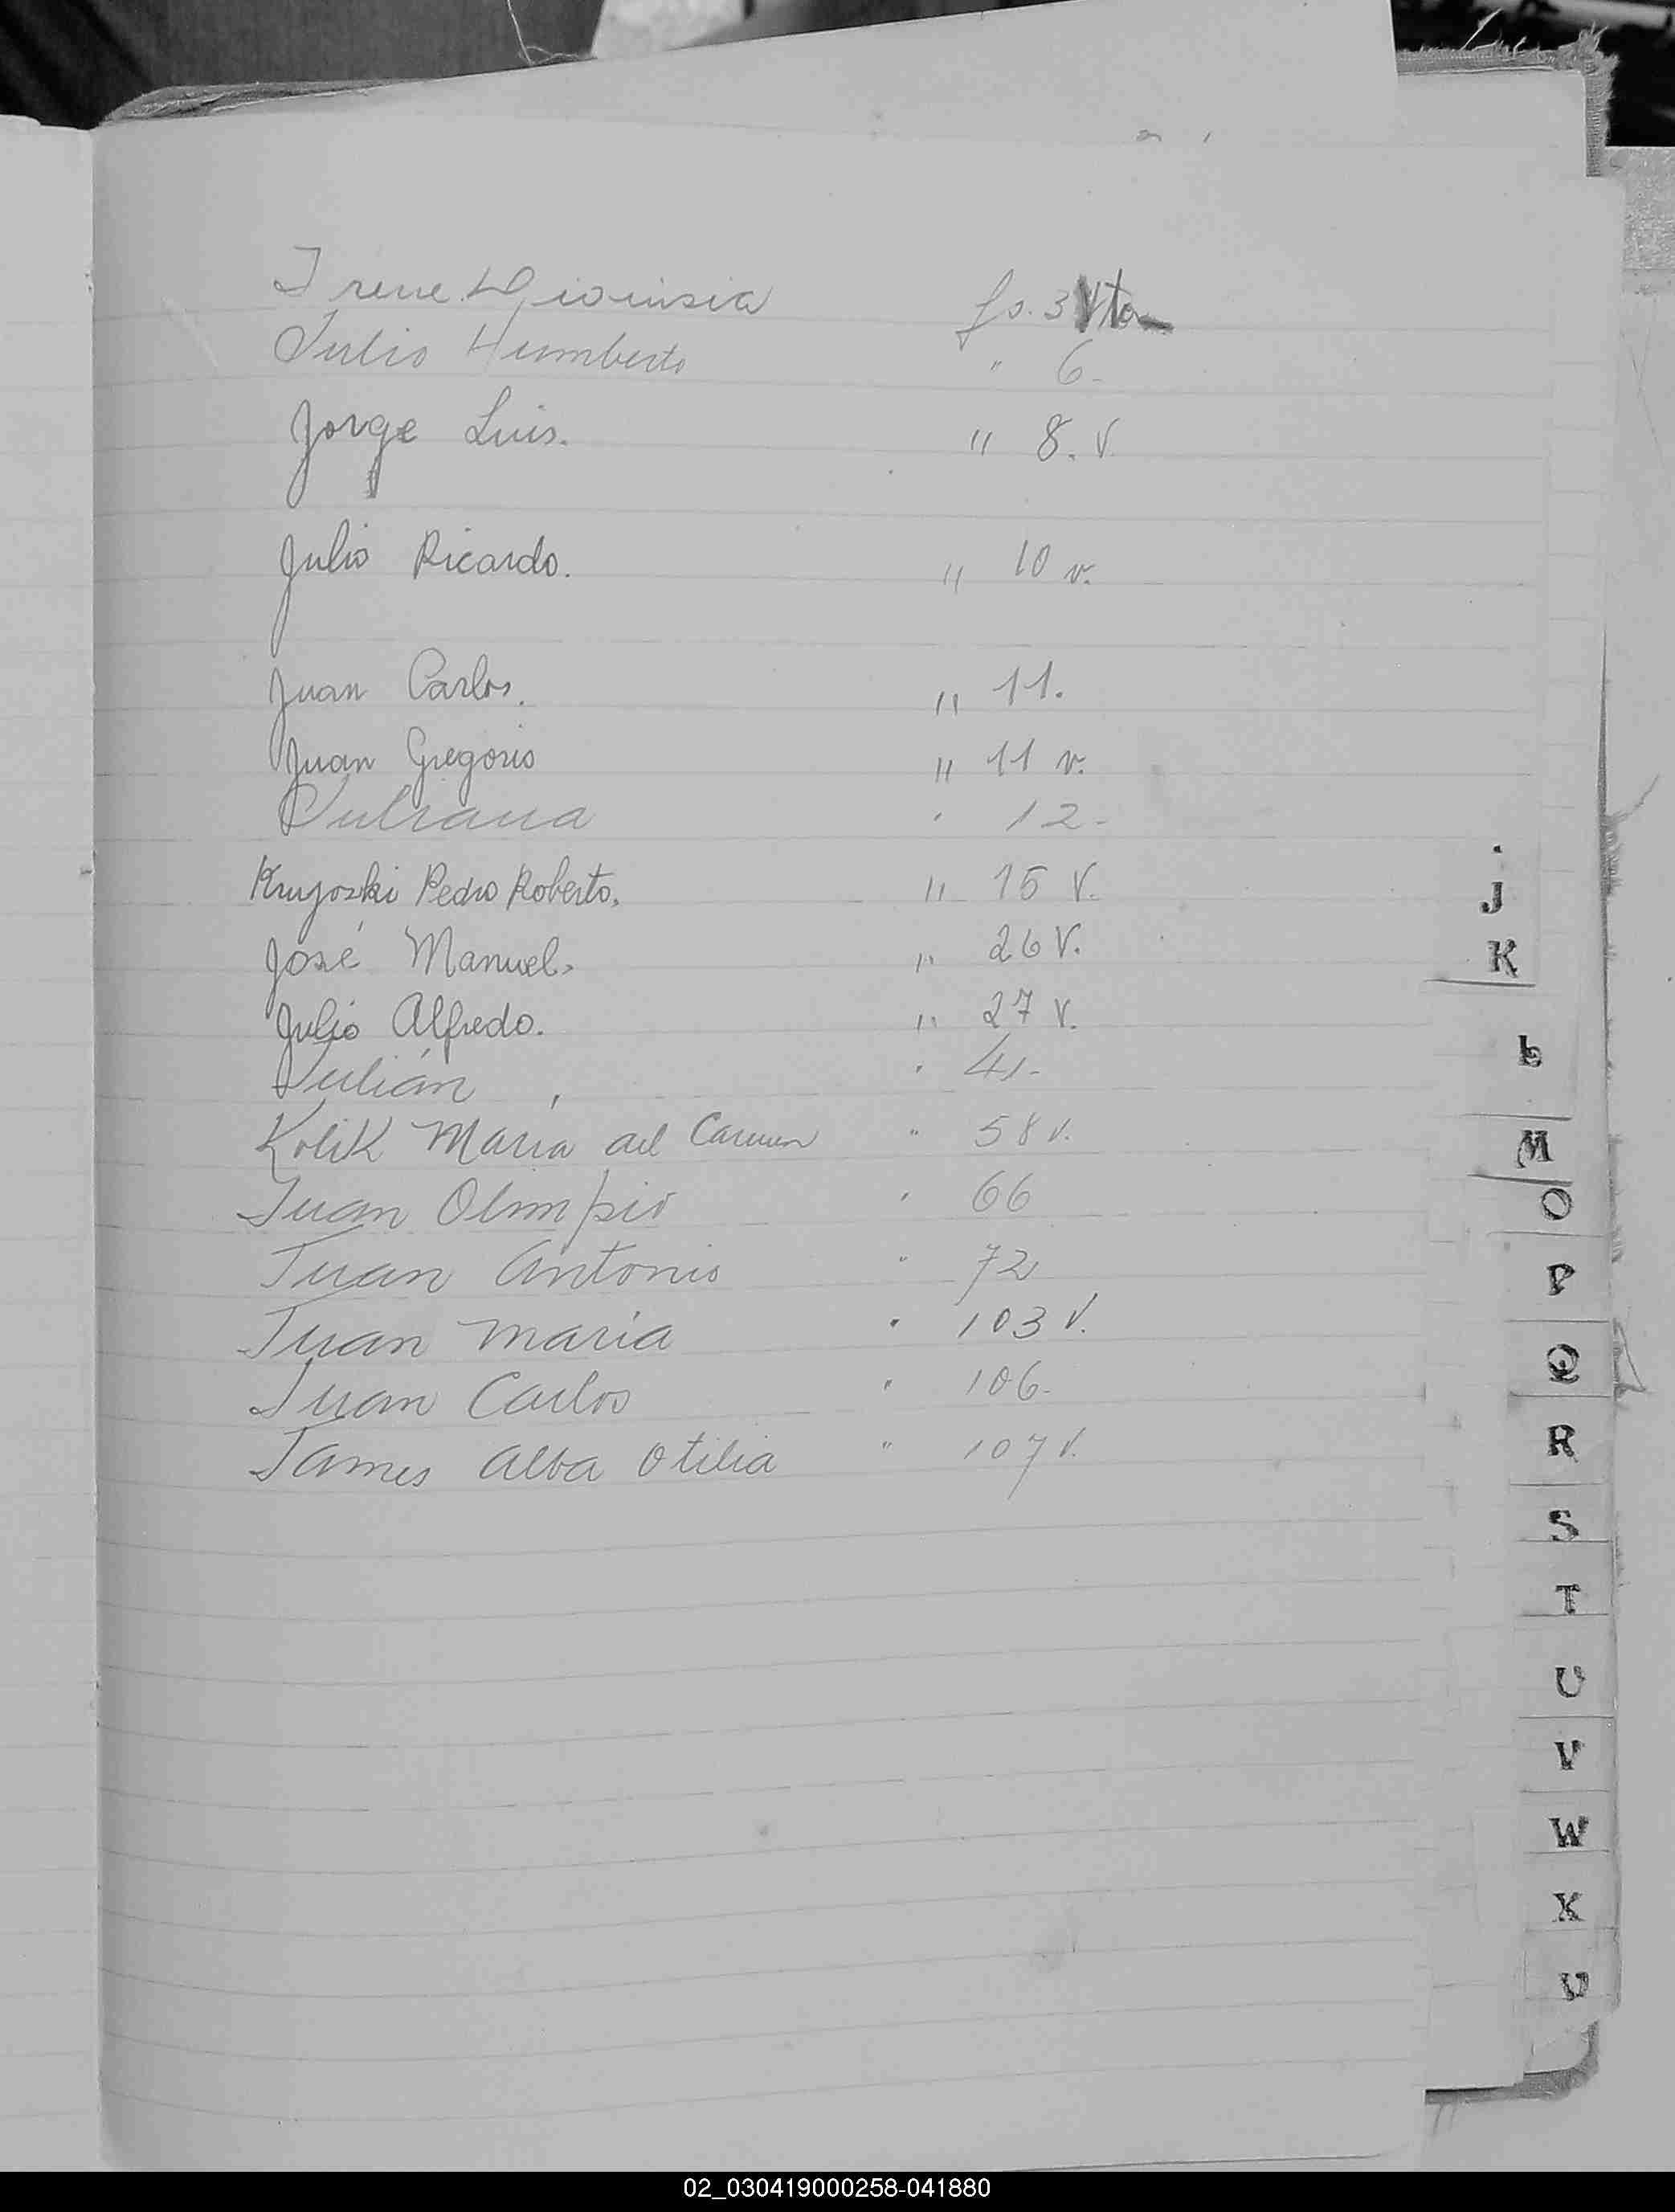 Irene Dionisia fs. 3 Vta
Julio Humberto " 6-
Jorge Luis. " 8. V.
Julio Ricardo. " 10 v.
Juan Carlos. " 11.
Juan Gregorio " 11 v.
Juliana " 12-
Pedro Roberto. " 15 V.
José Manuel. " 26 V.
Julio Alfredo. " 27 V.
Julián " 41-
Kolik Maria del Carmen " 58 v.
Juan Olimpio " 66
Juan Antonio " 72
Juan Maria " 103 V.
Juan Carlos " 106-
James Alba Otilia " 107 V.
J
K
L
M
O
P
Q
R
S
T
U
V
W
X
02_030419000258-041880